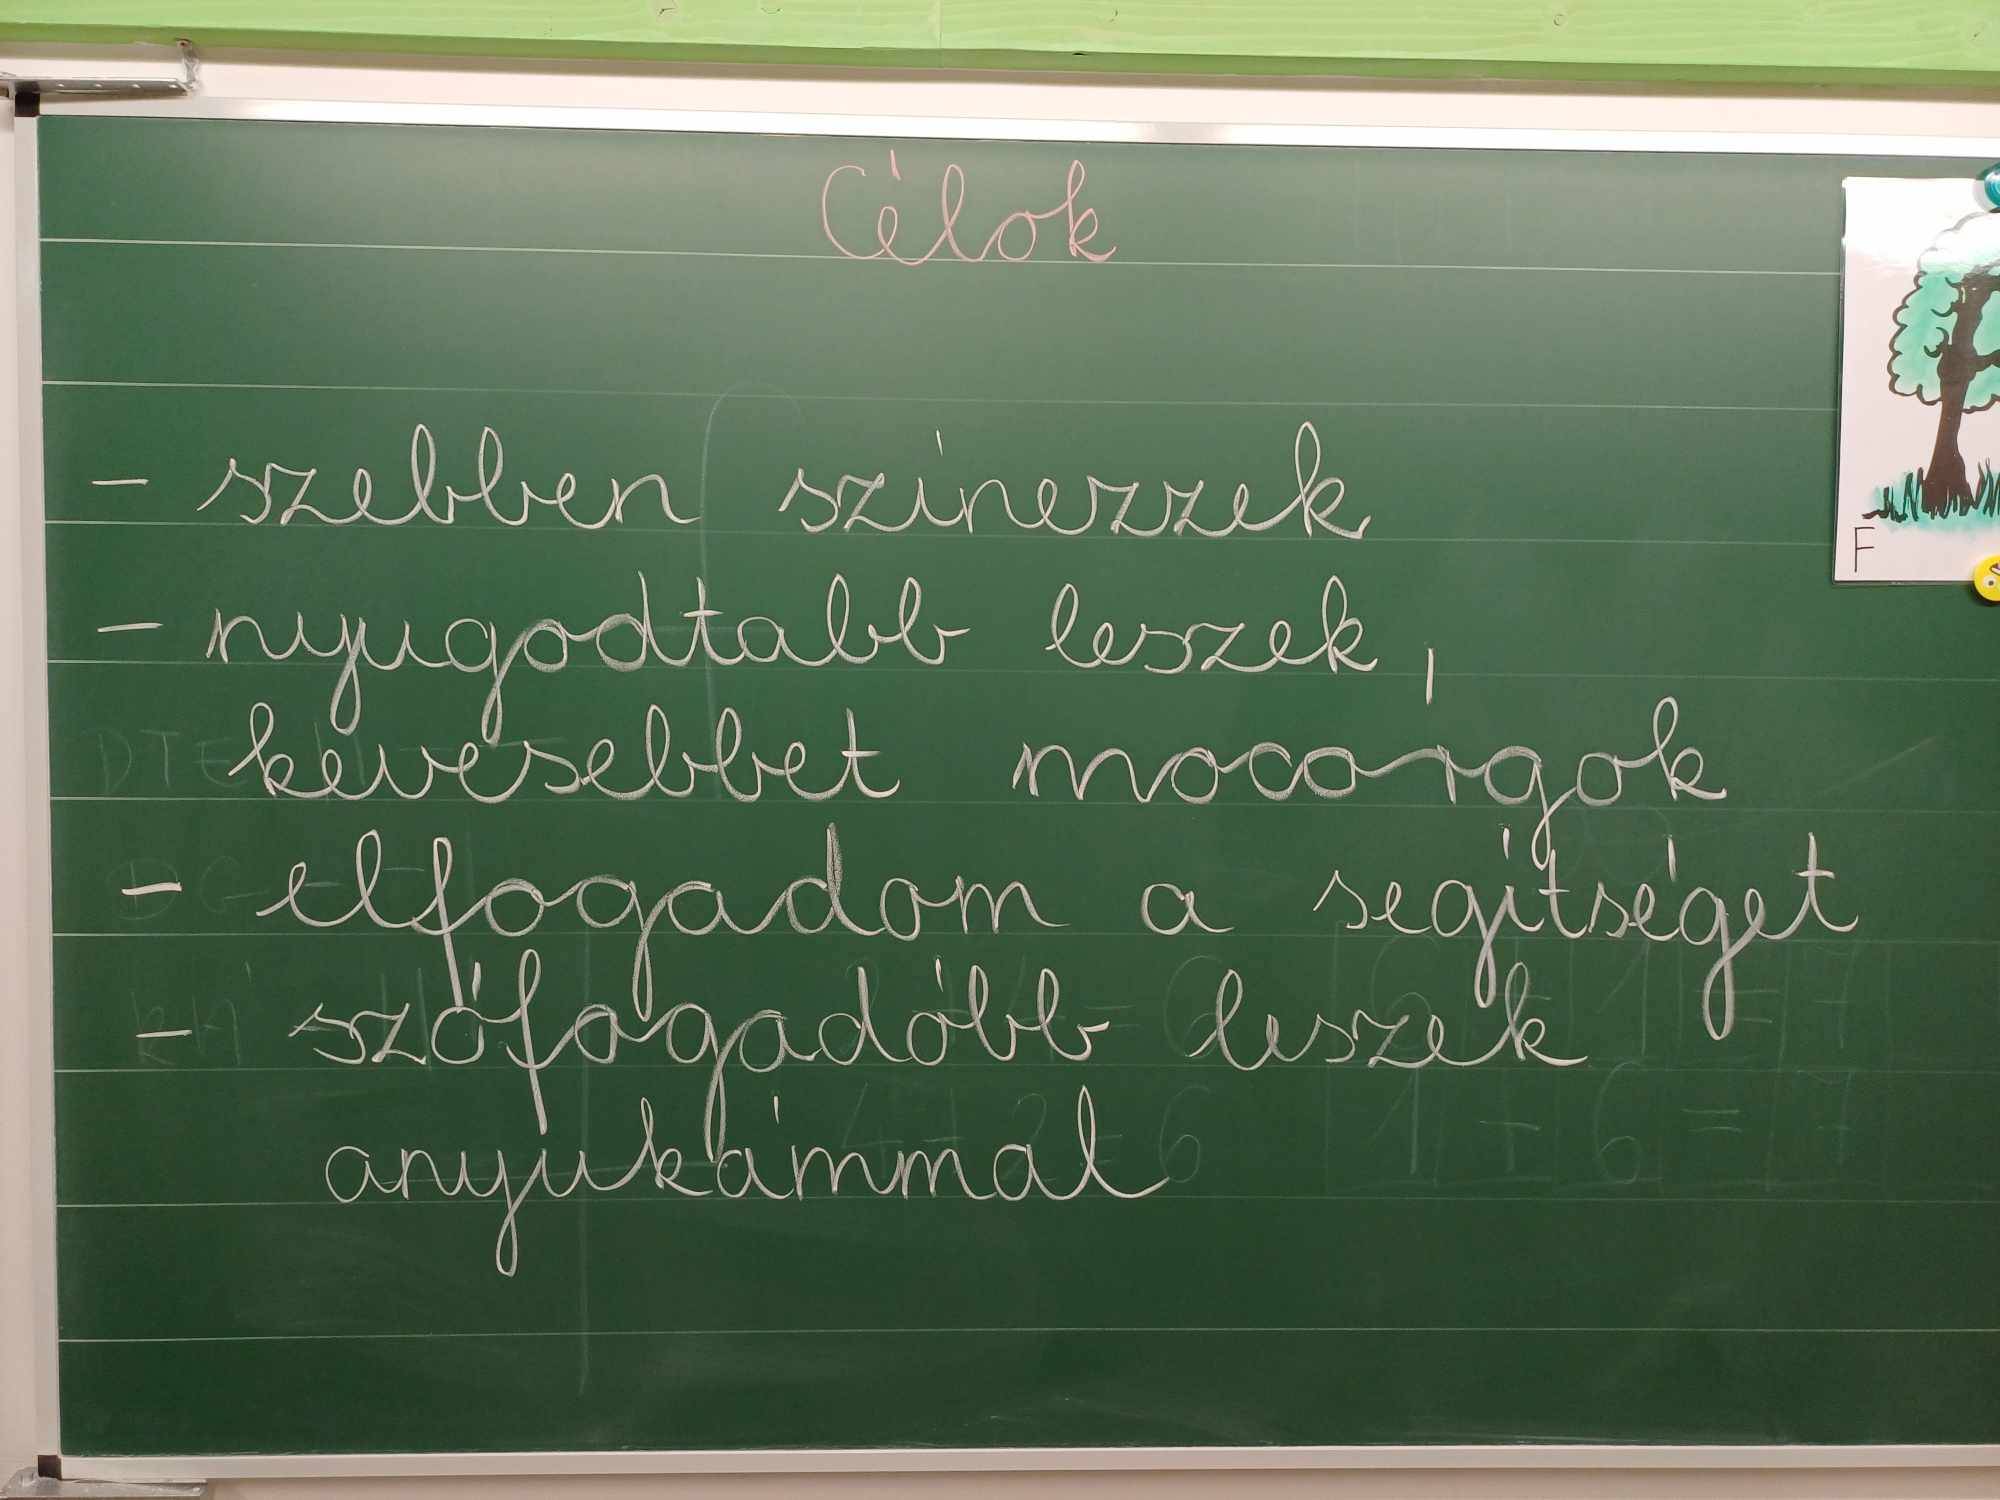 Célok
- szebben színezzek
- nyugodtabb leszek,
kevesebbet mocorgok
- elfogadom a segítséget
- szófogadóbb leszek
anyukámmal
F